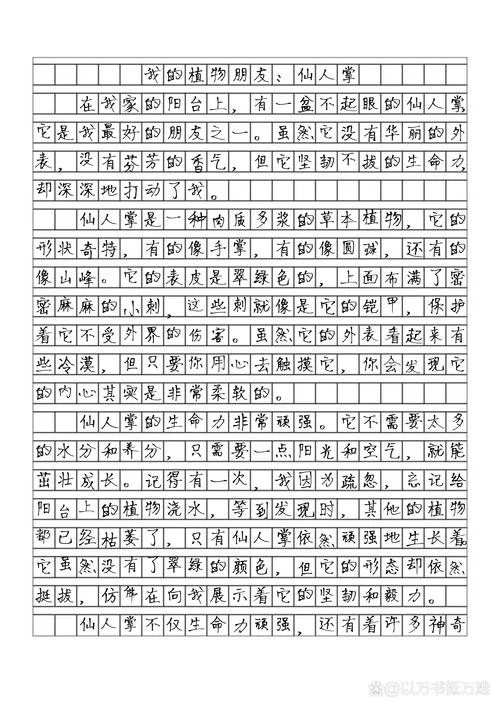 我的植物朋友、仙人掌
在我家的阳台上，有一盆不起眼的仙人掌，
它是我最好的朋友之一。虽然它没有华丽的外
表，没有芬芳的香气，但它坚韧不拔的生命力
却深深地打动了我。
仙人掌是一种肉质多浆的草本植物，它的
形状奇特，有的像手掌，有的像圆球，还有的
像山峰。它的表皮是翠绿色的，上面布满了密
密麻麻的小刺，这些刺就像是它的铠甲，保护
着它不受外界的伤害。虽然它的外表看起来有
些冷漠，但只要你用心去触摸它，你会发现它
的内心其实是非常柔软的。
仙人掌的生命力非常顽强。它不需要太多
的水分和养分，只需要一点阳光和空气，就能
茁壮成长。记得有一次，我因为疏忽，忘记给
阳台上的植物浇水，等到发现时，其他的植物
都已经枯萎了，只有仙人掌依然顽强地生长着。
它虽然没有了翠绿的颜色，但它的形态却依然
挺拔，仿佛在向我展示着它的坚韧和毅力。
仙人掌不仅生命力顽强，还有着许多神奇
@以万书抵万难